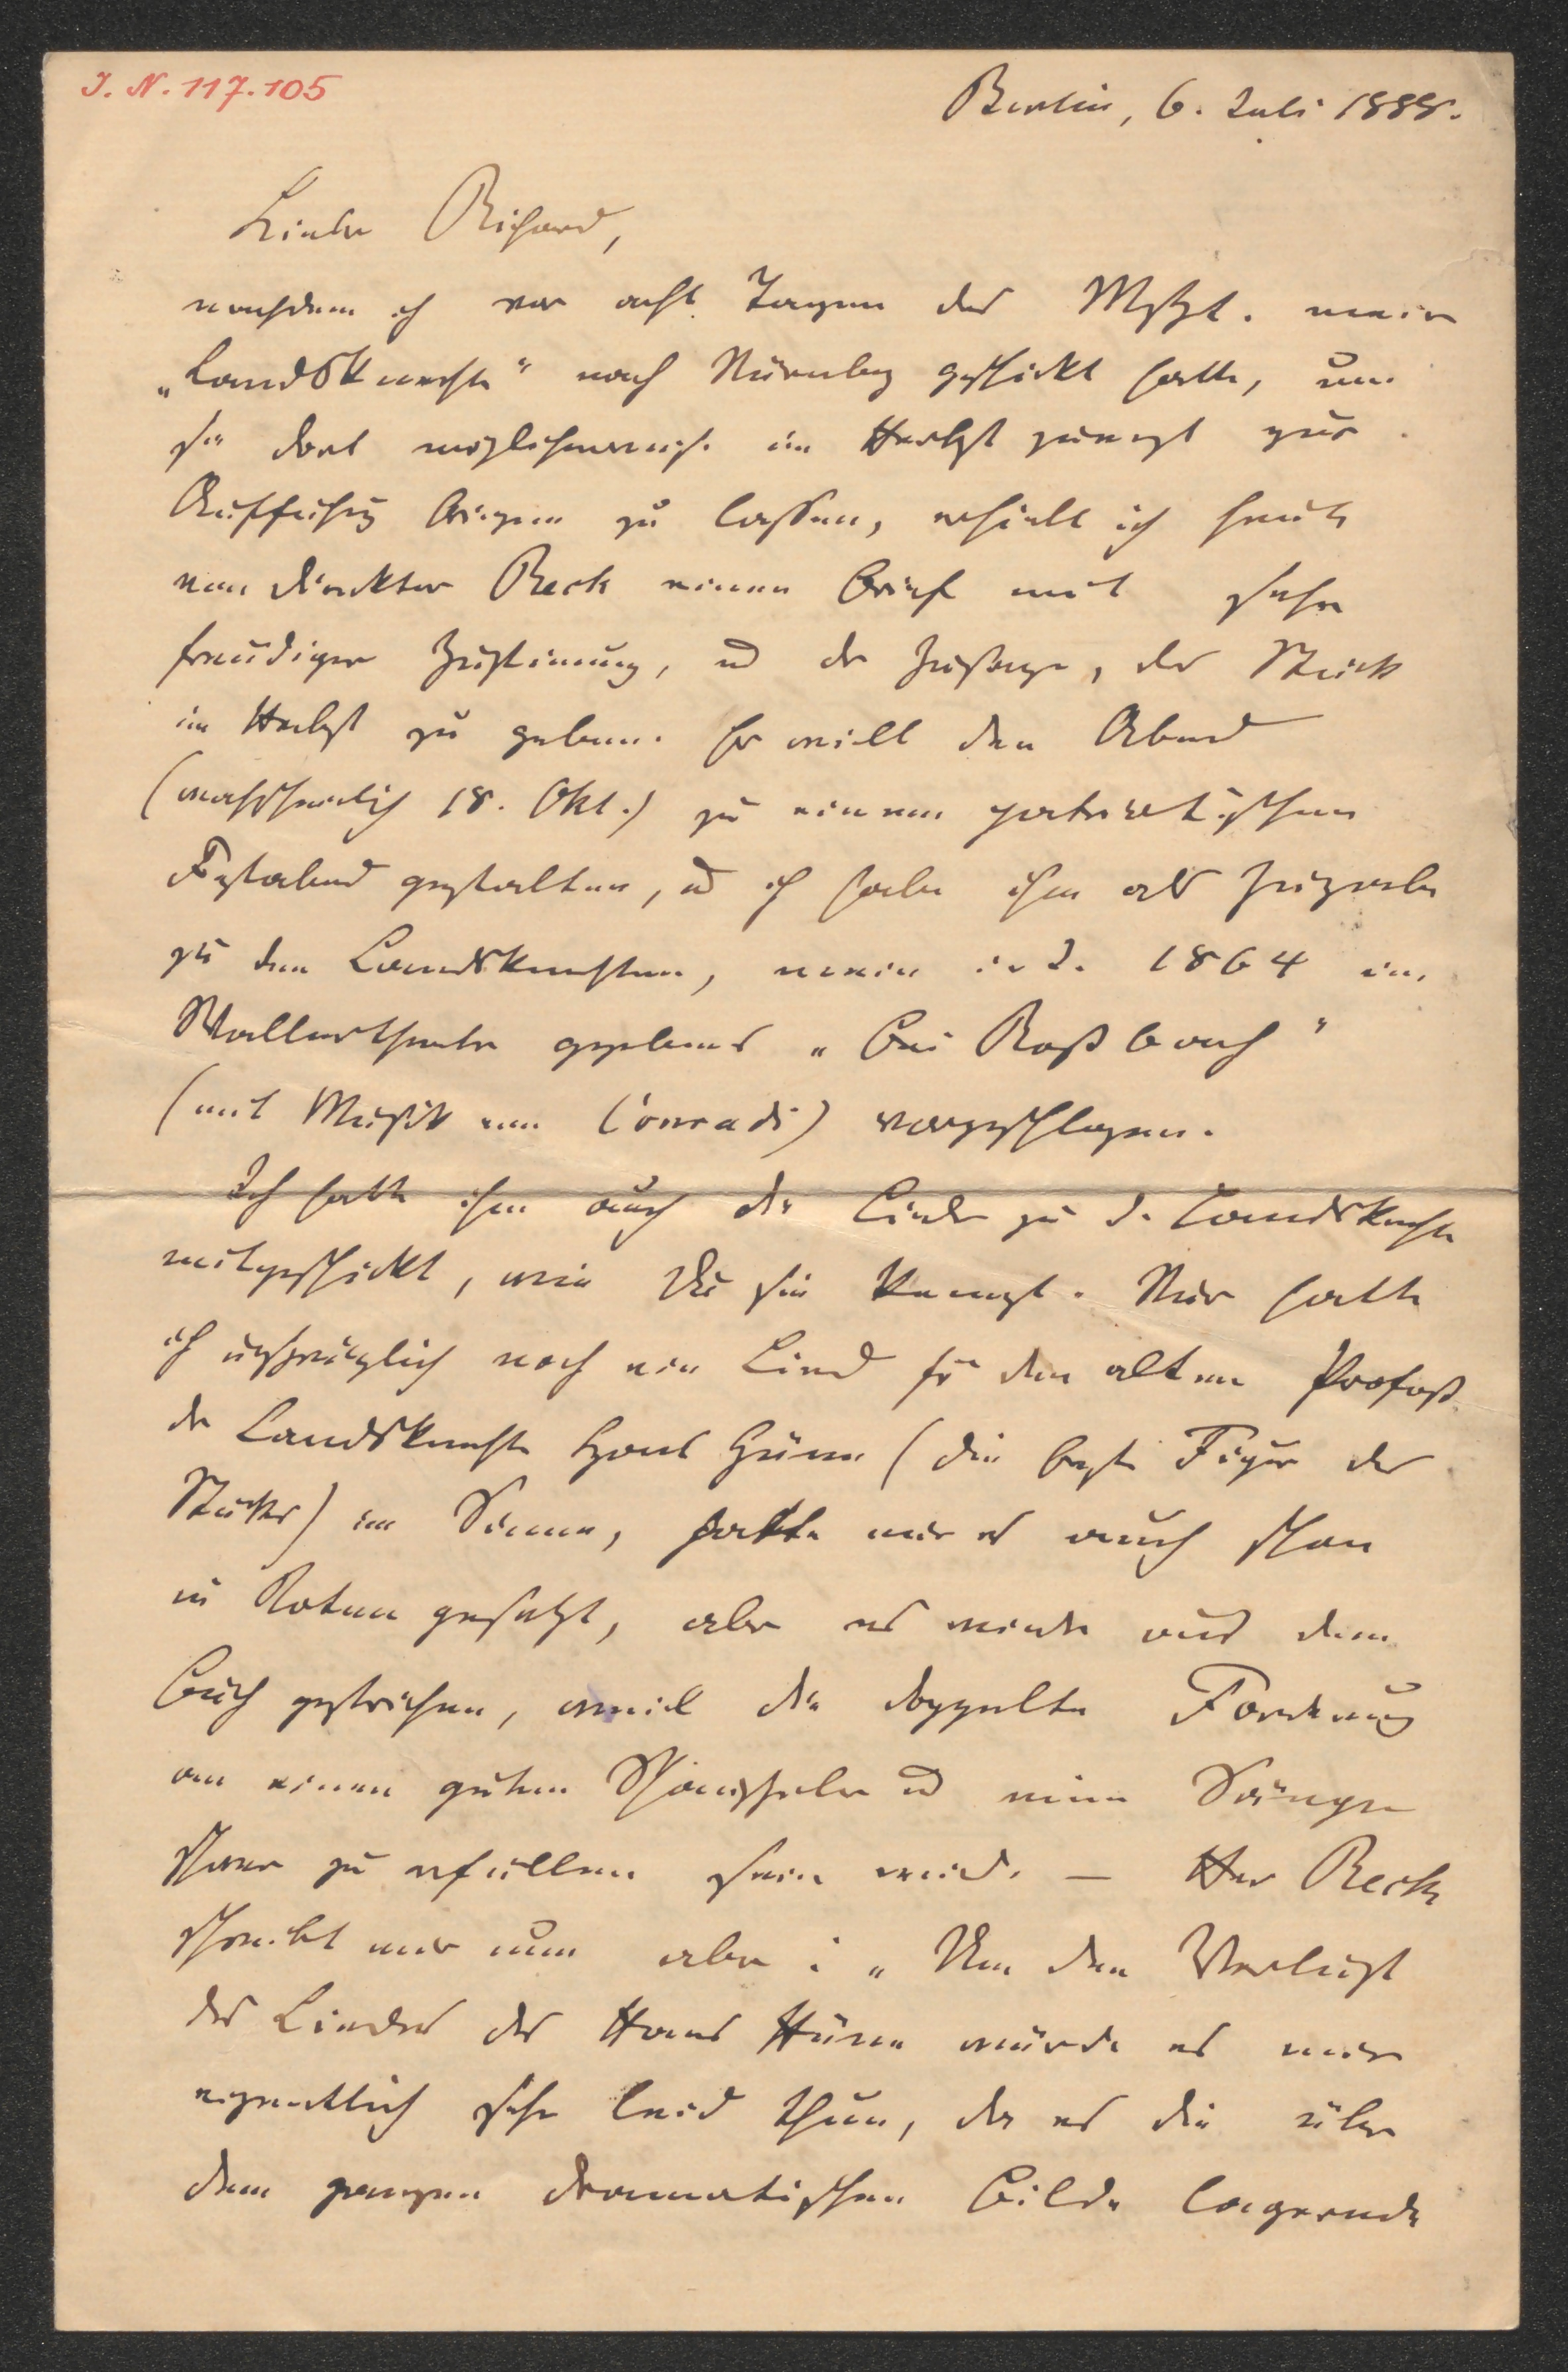 J. N. 117.105
Berlin, 6. Juli 1888.
Lieber Richard,
nachdem ich vor acht Tagen das Mskpt. meiner
„Landsknechte" nach Nürnberg geschickt hatte, um
sie dort möglicherweise im Herbst zuerst zur
Aufführung bringen zu lassen, erhielt ich heute
von Direktor Reck einen Brief mit sehr
freudiger Zustimmung, und der Zusage, das Stück
im Herbst zu geben. Er will den Abend
(wahrscheinlich 18. Okt.) zu einem patriotischen
Festabend gestalten, und ich habe ihm als Zugabe
zu den Landsknechten, mein i. J. 1864 im
Wallnertheater gegebenes „Bei Roßbach"
(mit Musik von Conradi) vorgeschlagen.
Ich hatte ihm auch die Lieder zu d. Landsknechten
mitgeschickt, wie Du sie kennst. Nur hatte
ich ursprünglich noch ein Lied für den alten Profoß
der Landsknechte Hans Hüne (die beste Figur des
Stückes) im Sinne, hatte mir es auch schon
in Noten gesetzt, aber es wurde aus dem
Buch gestrichen, weil die doppelte Forderung
an einen guten Schauspieler und einen Sänger
schwer zu erfüllen sein wird. — Herr Reck
schreibt mir nun aber: „Um den Verlust
des Liedes des Hans Hüne würde es mir
eigentlich sehr leid thun, da es die über
dem ganzen dramatischen Bilde lagernde